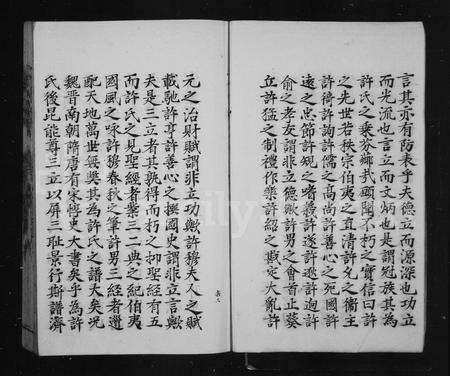 言其亦有防表乎夫德立而源深也功立
而光流也言立而文炳也是謂冠族其為
許氏之乘芬鄉武國聞不朽之實信曰許
之先世若秩宗伯夷之直清許允之衛主
許荷許詢許儒之高尚許善心之死國許
遠之忠節許規之嗜授許遂許遜許迥許
俞之孝友謂非立德歟許男之會首止葵
丘許猛之制禮作樂許紹之戡定大亂許
元之治財賦謂非立功歟許穆夫人之賦
載馳許亨許善心之撰國史謂非立言歟
夫是三立者其孰得而朽之抑聖經有五
而許氏之見聖經者槩三二典之紀伯夷
國風之咏許穆春秋之筆許男三經者選
配天地萬世無獘其為許氏之譜大矣況
魏晉南朝隋唐有宋諸史大書矣乎為許
氏後昆能尊三立以屏三耻景行斯譜濟